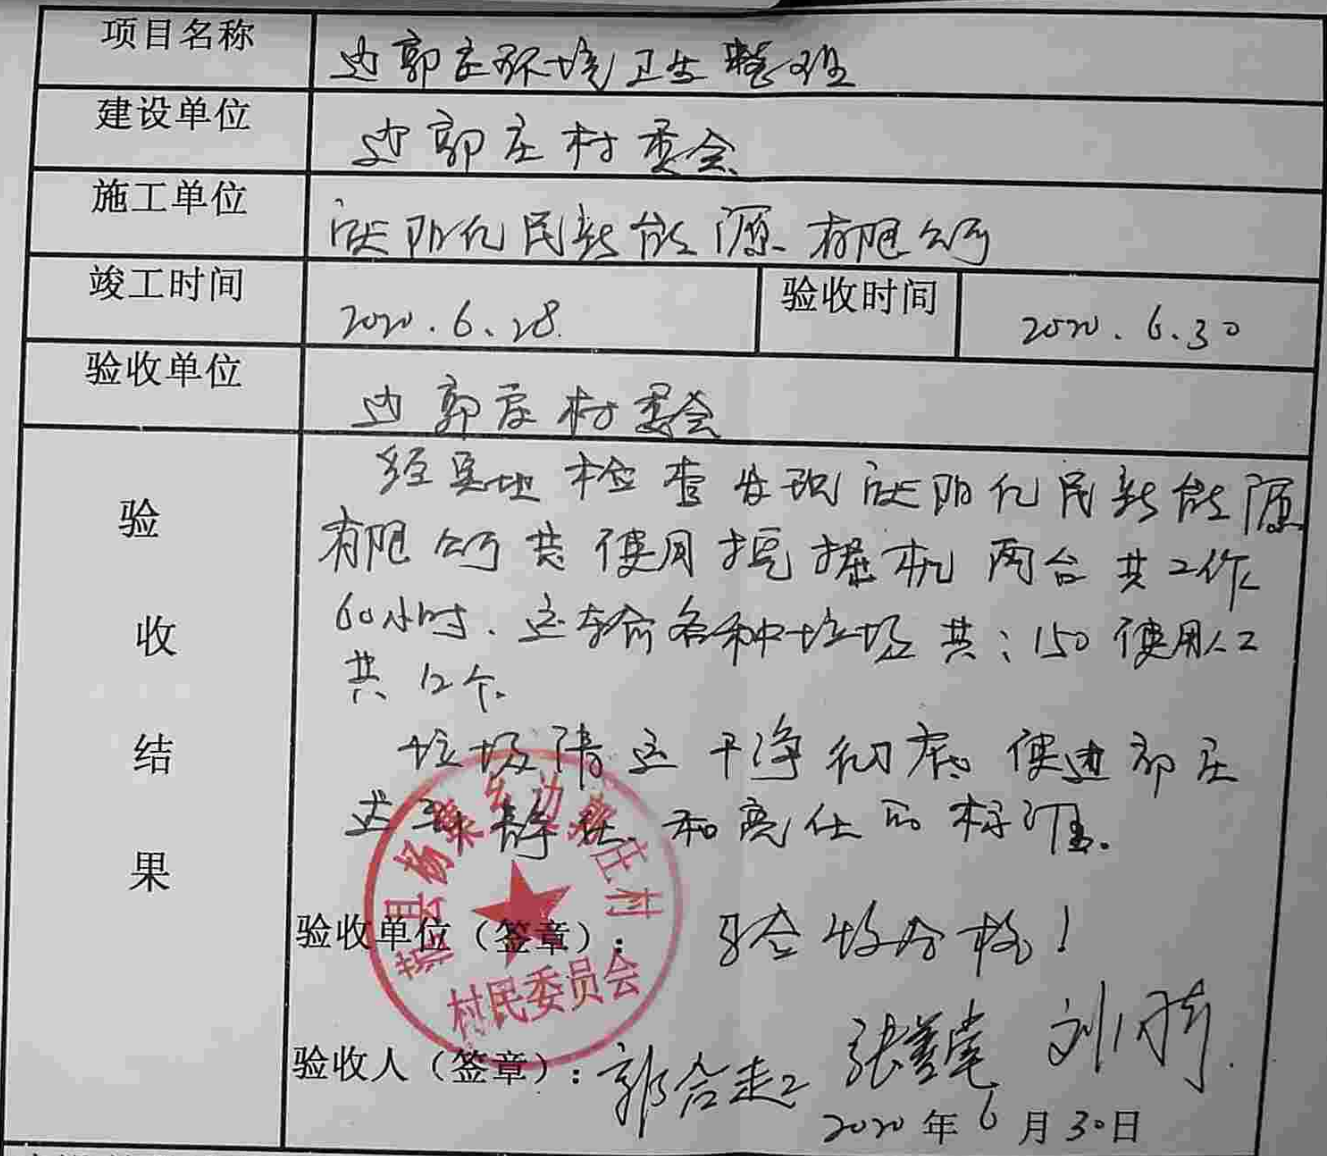 项目名称 边郭庄环境卫生整理
建设单位 边郭庄村委会
施工单位 庆阳亿民新能源有限公司
竣工时间 2020.6.28. 验收时间 2020.6.30
验收单位 边郭庄村委会
验收结果
经实地检查发现庆阳亿民新能源
有限公司共使用挖掘机两台共工作
60小时.运输各种垃圾共:150使用人工
共12个.
垃圾清运干净彻底使边郭庄
达到 和亮化的标准.
验收单位（签章）: 验收合格!
杨渠乡边郭庄村
村民委员会
验收人（签章）: 郭合 张 刘
2020年6月30日